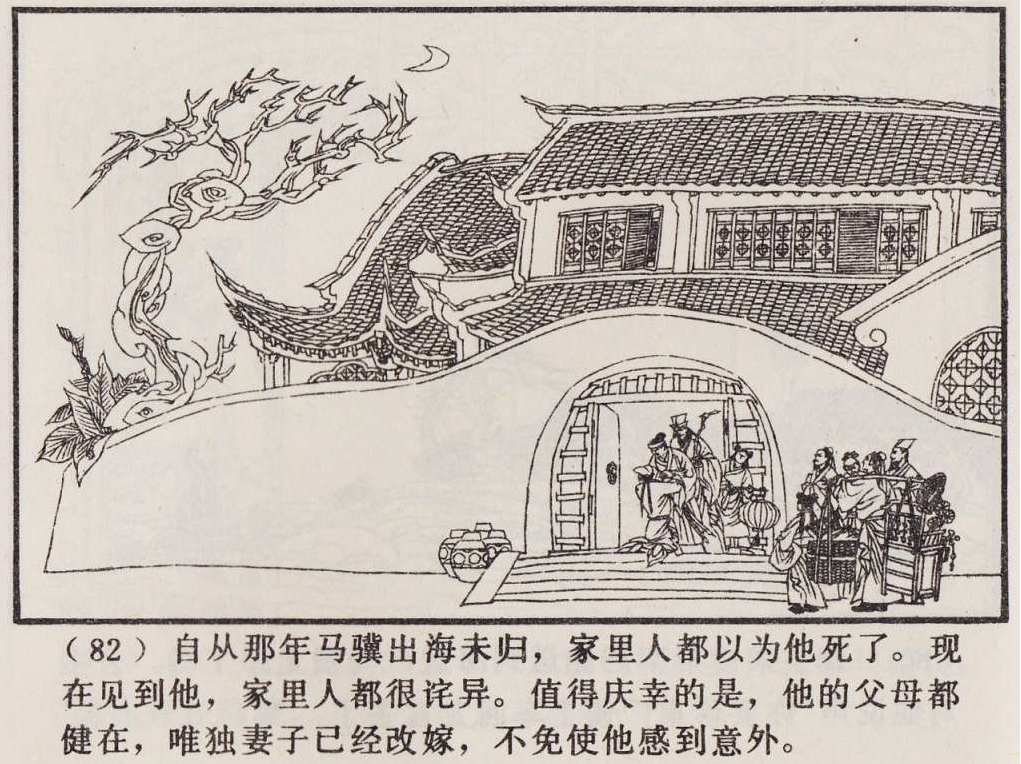 （82）自从那年马骥出海未归，家里人都以为他死了。现
在见到他，家里人都很诧异。值得庆幸的是，他的父母都
健在，唯独妻子已经改嫁，不免使他感到意外。